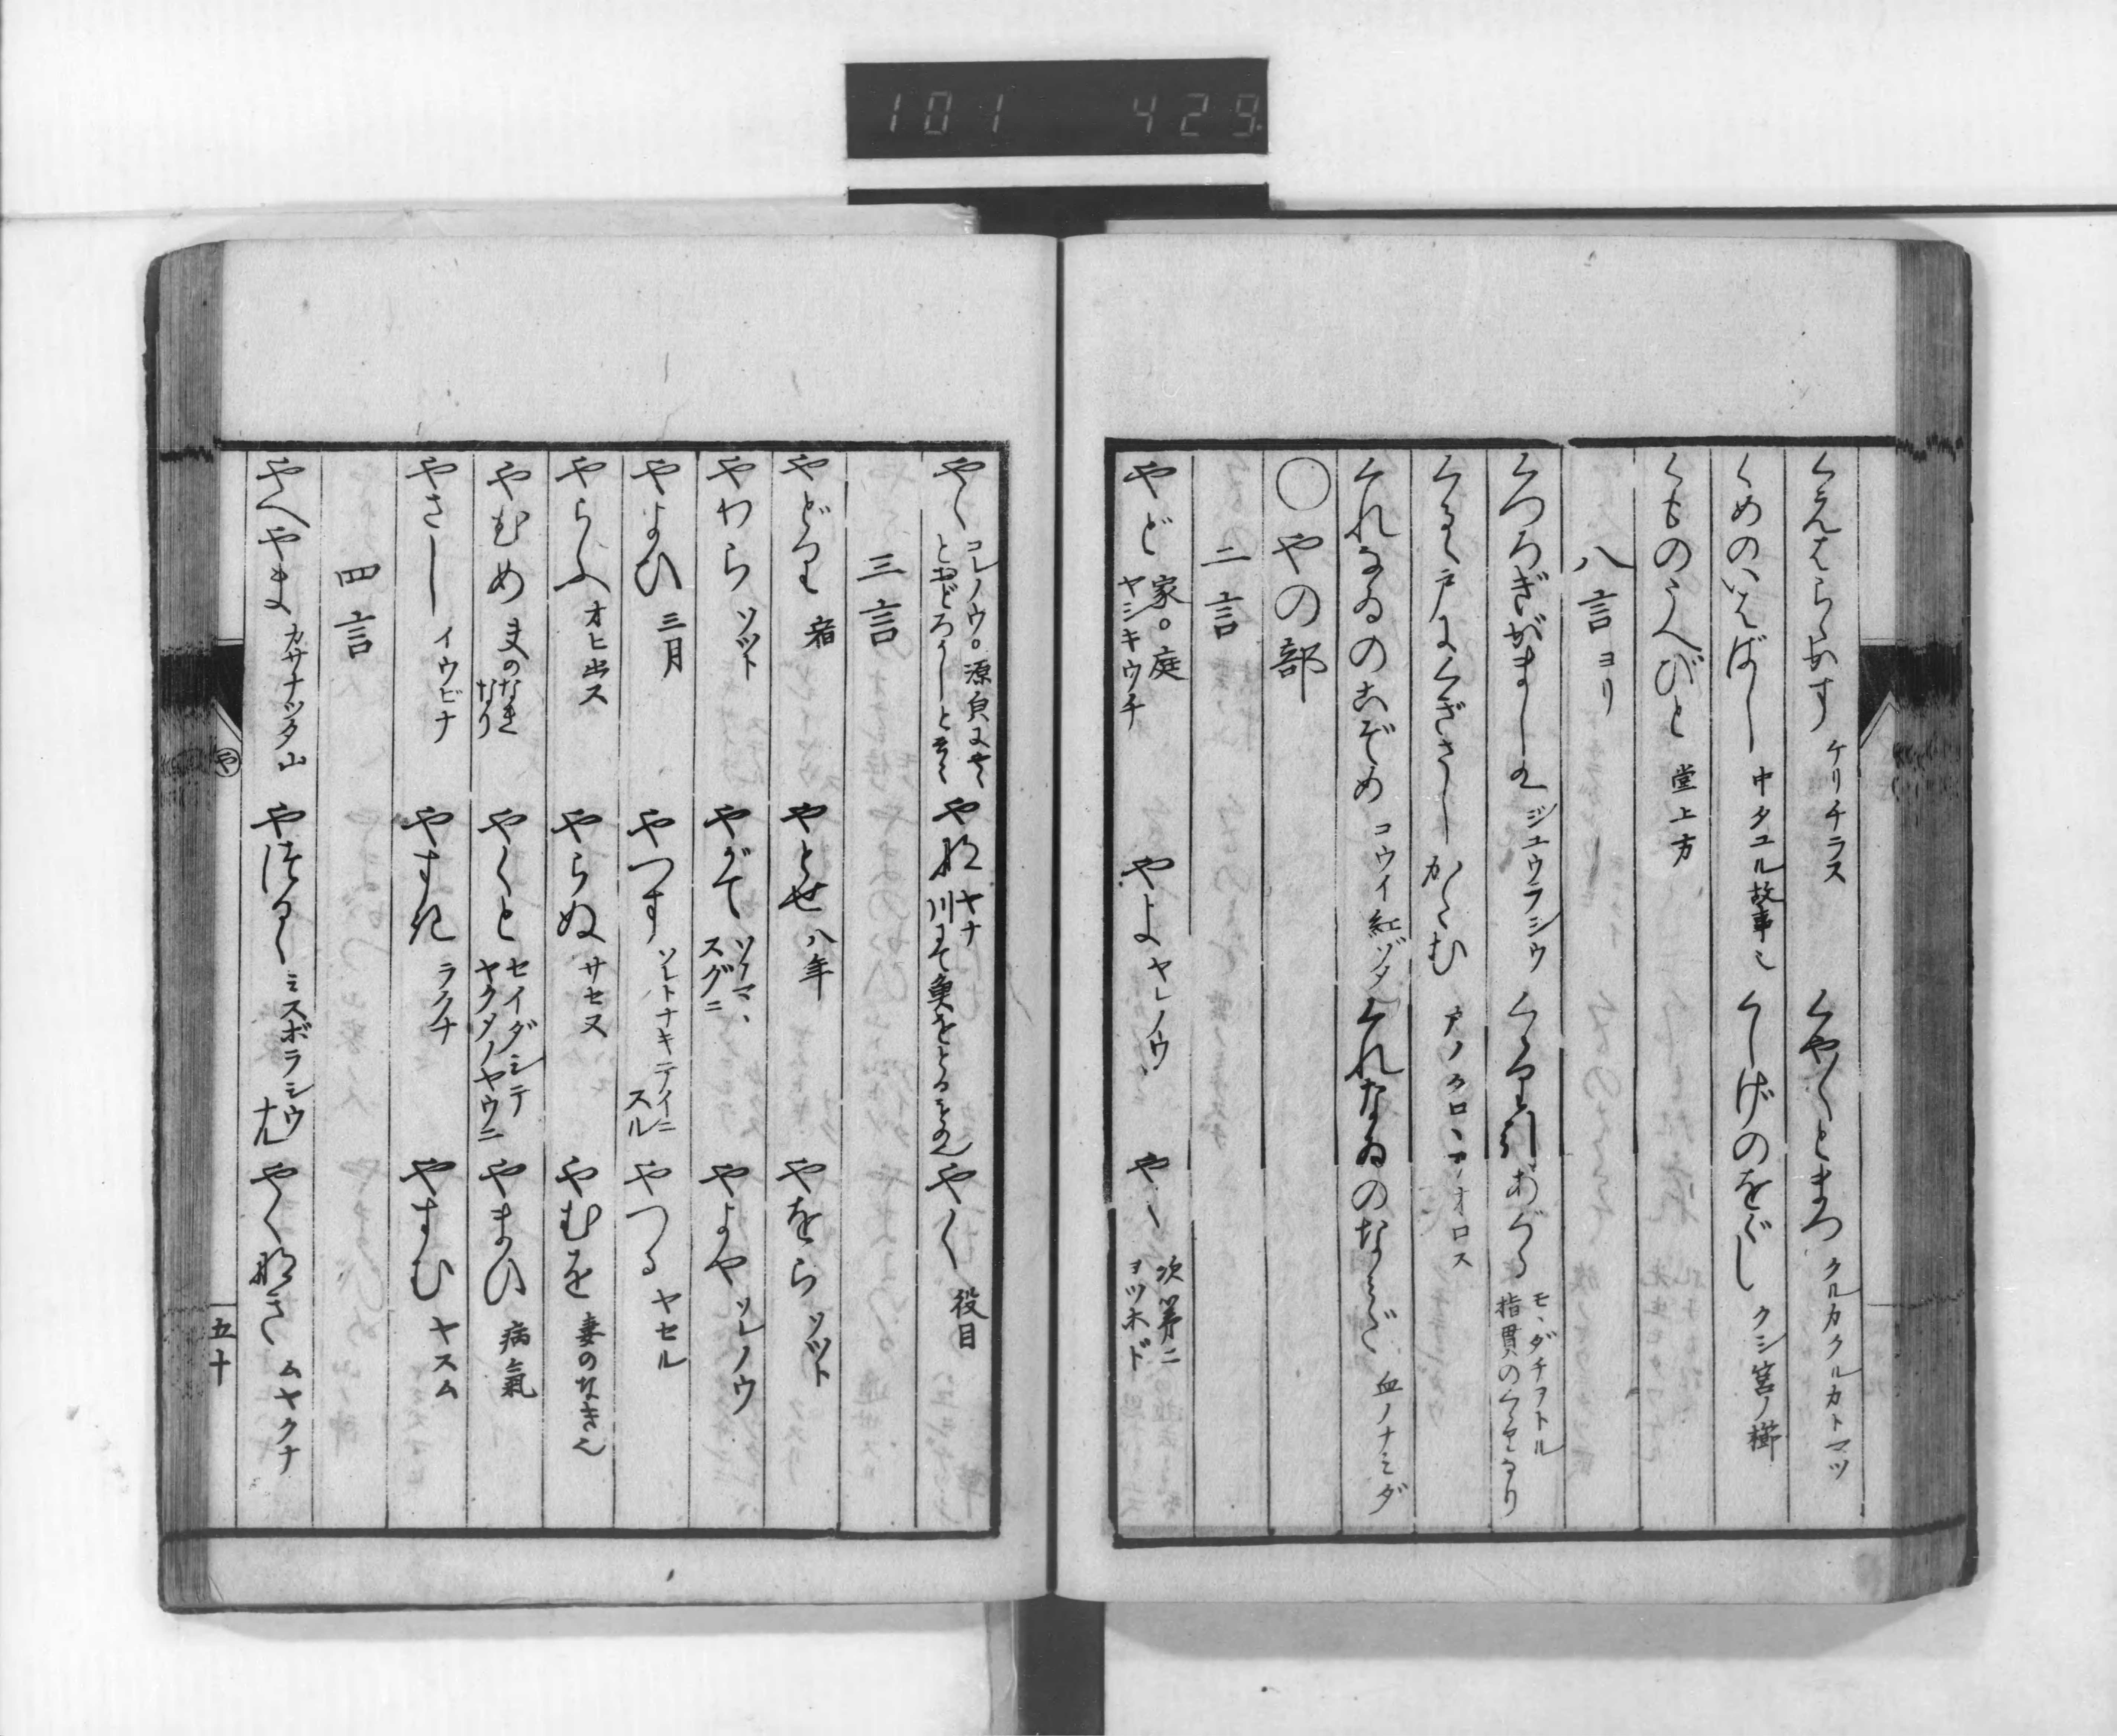 101 429
くえはらゝかす ケリチラス くやくやとまつ クルカクルカトマツ
くめのいはばし 中タユル故事也 くしげのをぐし クシ宮ノ櫛
くものうへびと 堂上方
八言ヨリ
くつろぎがましく ジユウラシウ くゝり引あぐる モヽダチヲトル 指貫のくゝりなり
くるゝ戸にくぎさしかくむ 戸ノクロヽヲオロス
くれなゐのこぞめ コウイ紅ゾメ くれなゐのなみだ 血ノナミダ
○やの部
二言
やど 家。庭 ヤシキウチ やよ ヤレノウ やゝ 次第ニ ヨツホド
やゝ コレノウ。源良にやゝ とおどろかしとそゝ やな ヤナ 川にて魚をとるもの やく 役目
三言
やどり 宿 やとせ 八年 やをら ソツト
やわら ソツト やがて ソノマヽ スグニ やよや ソレノウ
やよひ 三月 やつす ソレトナキテイニスル やつる ヤセル
やらふ オヒ出ス やらぬ サセヌ やむを 妻のなき也
やむめ 夫のなきなり やくと セイダシテ ヤクメノヤウニ やまひ 病氣
やさし イウビナ やすき ラクナ やすむ ヤスム
四言
やへやま カサナツタ山 やつるゝ ミスボラシウナル やくなき ムヤクナ
や
五十